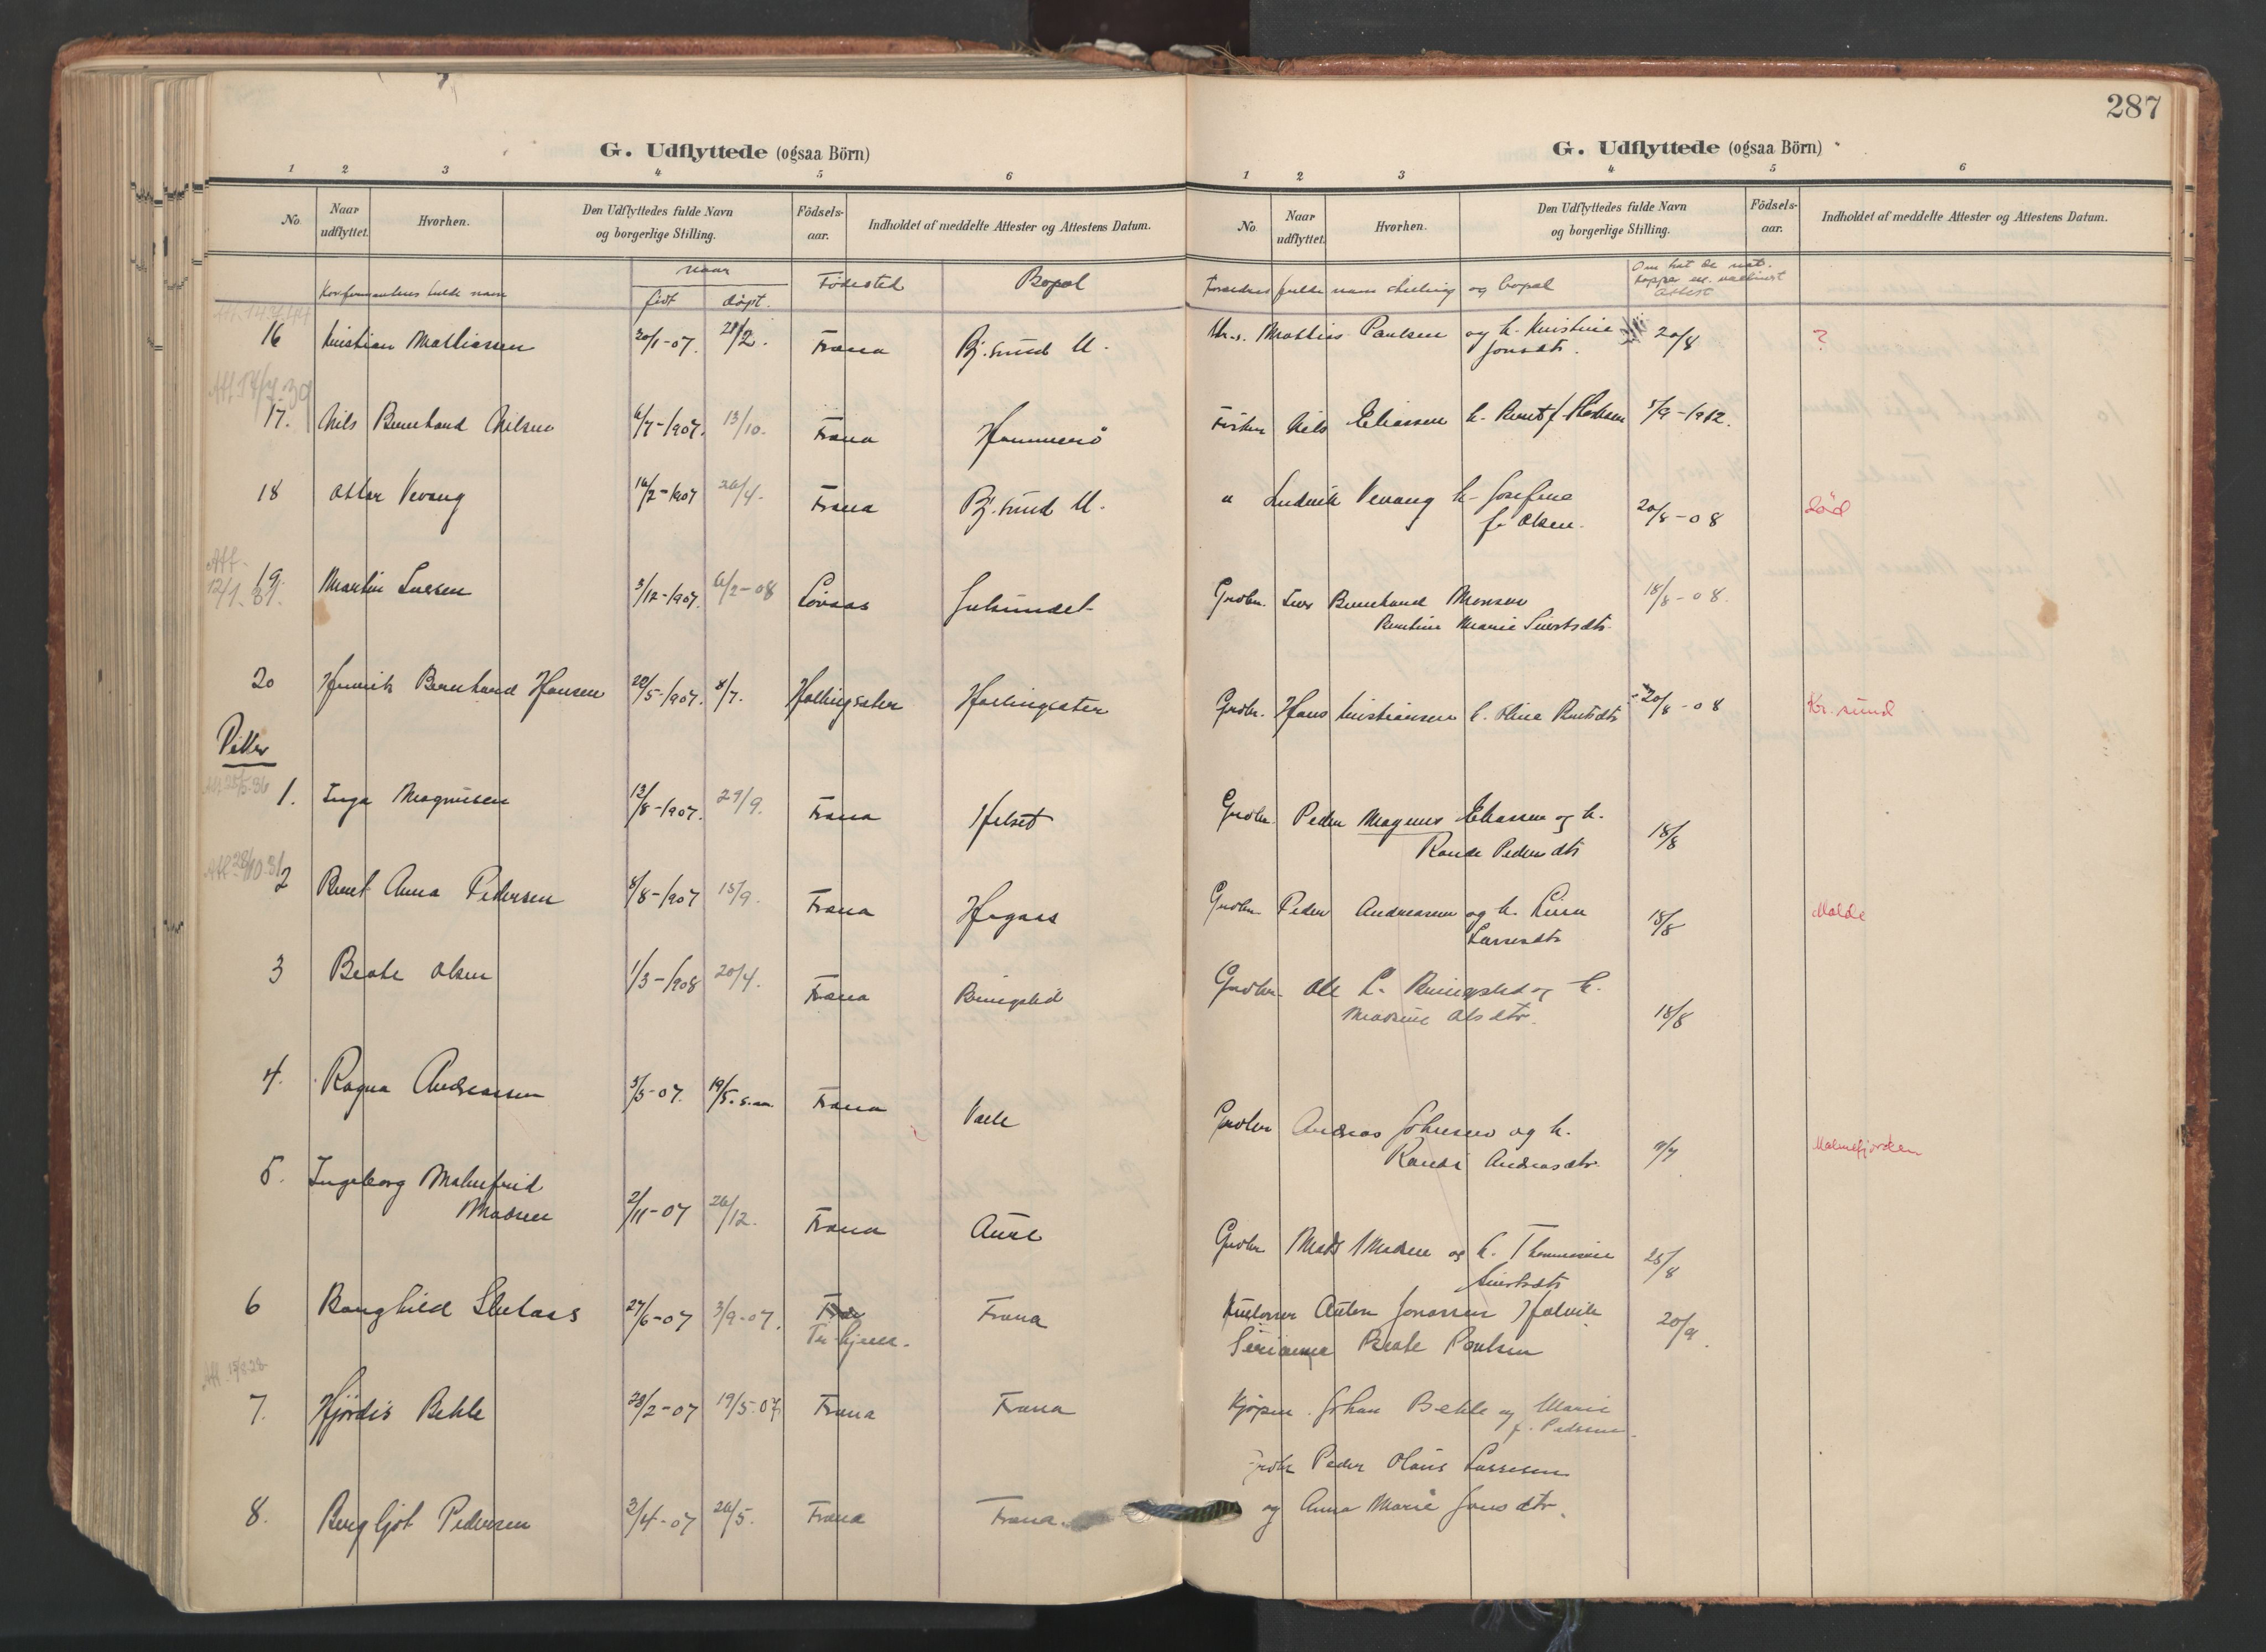 287
G. Udflyttede (ogsaa Börn)
1 2 3 4 5 6
No. Naar udflyttet. Hvorhen. Den Udflyttedes fulde Navn og borgerlige Stilling. Födsels-aar. Indholdet af meddelte Attester og Attestens Datum.
Konfirmantens fulde navn naar født døpt. Fødested Bopæl
16 Kristian Mathiassen 20/1-07. 28/2. Fræna Bj.sund U.
Att. 17/7.39
17. Nils Bernhard Nilsen 6/7-1907. 13/10. Fræna Hammerø
18 Ottar Vevang 16/2-1907 26/4. Fræna Bj.sund U.
Att. 12/1.31.
19. Martin Larsen 3/12-1907. 6/2-08 Lovaas Julsundet
20 Henrik Bernhard Hansen 20/5-1907. 8/7. Hollingsæter Hollingsæter
Piker
Att. 25/5.36
1. Inga Magnusen 13/8-1907. 29/9. Fræna Helset
Att. 28/10 31
2 Berit Anna Pedersen 8/8-1907 15/9. Fræna Hagaas
3 Beate Olsen 1/3-1908 20/4. Fræna
4. Ragna Andreassen 5/3-07. 19/5. s.aa. Fræna Vaele
5. Ingeborg Malmfrid
Madsen 2/11-07 26/12. Fræna Aure
6 Ranghild Stenlaas 27/6-07 3/9-07. Tr.hjem. Fræna
Att. 15/8-28
7. Hjørdis Bekle 28/2-07 19/5-07 Fræna Fræna
8. Bergljot Pedersen 3/4-07 26/5. Fræna Fræna.
G. Udflyttede (ogsaa Börn)
1 2 3 4 5 6
No. Naar udflyttet. Hvorhen. Den Udflyttedes fulde Navn og borgerlige Stilling. Födsels-aar. Indholdet af meddelte Attester og Attestens Datum.
Forældres fulde navn stilling og bopæl Om hat de nat. kopper el. vaccinert Attest
Mathias Paulsen og h. Kristine
Jonsdtr. 20/8 ?
Fisker Nils Eliassen h. Berit f. 5/9-1912.
" Ludvik Vevang h. Josefine
f. Olsen. 20/8-08 död
Grdbr. Lars Bernhard Monsen
Bertine Marie Sivertsdtr. 18/8-08.
Grdbr. Hans Kristiansen h. Oline Berntsdtr 20/8-08 Kr.sund
Grdbr. Peder Magnus Eliassen og h.
Rande Pedersdtr 18/8
Grdbr. Peder Andreassen og h. Lina
Larsesdtr 18/8 Molde
Grdbr. Ole L. og h.
Madsine Olsdtr. 18/8
Grdbr Andreas Johnsen og h.
Randi Andreasdtr. 9/7. Malmefjorden
Grdbr Mads Madsen og h. Thomasine
Sivertsdtr 25/8
Anton Jonassen Hælvik
Serianna Beate Paulsen 20/9.
Kjøpm. Johan Bekle og Marie
f. Pedersen.
Grdbr Peder Olaus Larssen
og Anna Marie Jonsdtr.